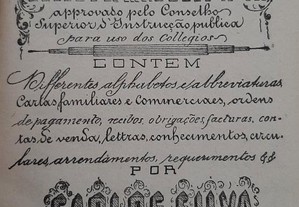 approvado pelo Conselho
Superior d'Instrucção publica
para uso dos Collegios
CONTEM
Differentes alphabetos e abbreviaturas
Cartas familiares e Commerciaes, ordens
de pagamento, recibos, obrigações, facturas, con-
tas de venda, lettras, conhecimentos, circu-
lares, arrendamentos, requerimentos &&
POR
SILVA